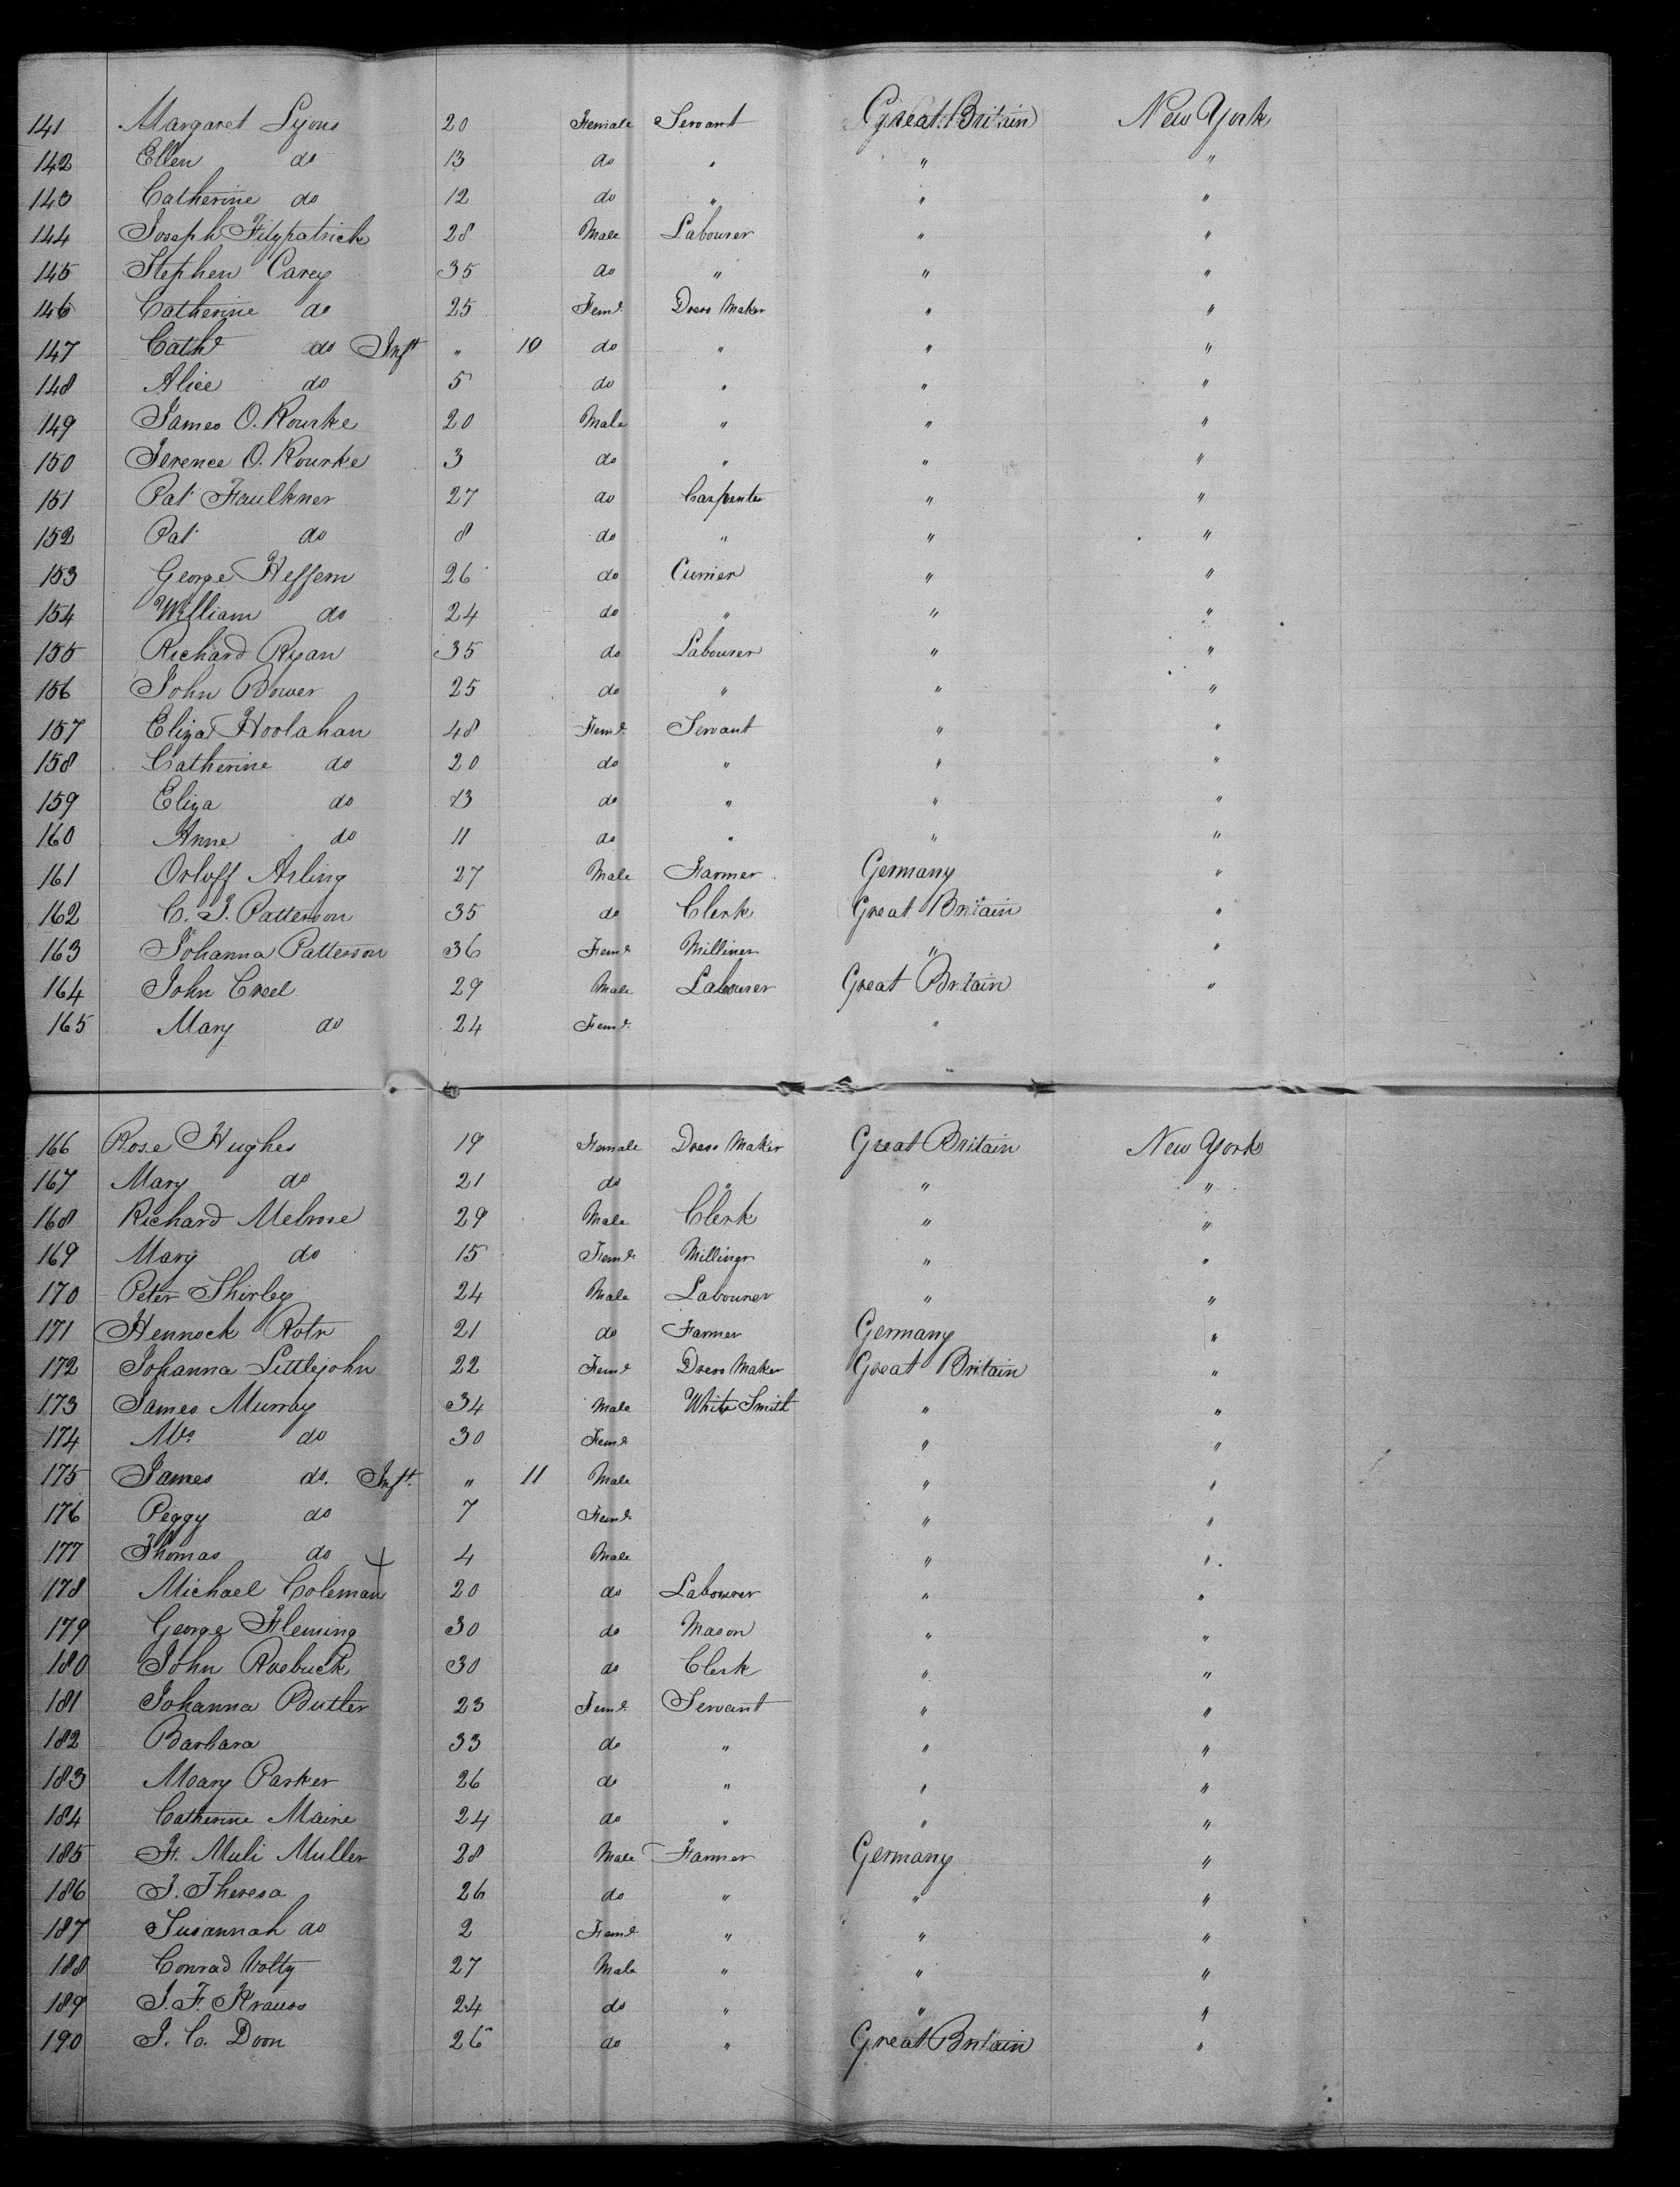 141 Margaret Lyons 20 Female Servant Great Britain New York
142 Ellen do 13 do " " "
143 Catherine do 12 do " " "
144 Joseph Fitzpatrick 28 Male Labourer " "
145 Stephen Carey 35 do " " "
146 Catherine do 25 Feme Dress Maker " "
147 Cathe do Inft " 10 do " " "
148 Alice do 5 do " " "
149 James O. Rourke 20 Male " " "
150 Terence O. Rourke 3 do " " "
151 Pat Faulkner 27 do Carpenter " "
152 Pat do 8 do " " "
153 George Heffern 26 do Currier " "
154 William do 24 do " " "
155 Richard Ryan 35 do Labourer " "
156 John Bower 25 do " " "
157 Eliza Hoolahan 48 Feme Servant " "
158 Catherine do 20 do " " "
159 Eliza do 13 do " " "
160 Anne do 11 do " " "
161 Orloff Arling 27 Male Farmer Germany "
162 C. J. Patterson 35 do Clerk Great Britain "
163 Johanna Patterson 36 Feme Milliner " "
164 John Creel 29 Male Labourer Great Britain "
165 Mary do 24 Feme "
166 Rose Hughes 19 Female Dress Maker Great Britain New York
167 Mary do 21 do " " "
168 Richard Melrose 29 Male Clerk " "
169 Mary do 15 Feme Milliner " "
170 Peter Shirley 24 Male Labourer " "
171 Hennock Rotr 21 do Farmer Germany "
172 Johanna Littlejohn 22 Feme Dress Maker Great Britain "
173 James Murray 34 Male White Smith " "
174 Mrs do 30 Feme " "
175 James do. Inft. " 11 Male " "
176 Peggy do 7 Feme " "
177 Thomas do 4 Male " "
178 Michael Coleman 20 do Labourer " "
179 George Fleming 30 do Mason " "
180 John Roebuck 30 do Clerk " "
181 Johanna Butler 23 Feme Servant " "
182 Barbara 33 do " " "
183 Mary Parker 26 do " " "
184 Catherine Maire 24 do " " "
185 F. Muli Muller 28 Male Farmer Germany "
186 J. Theresa 26 do " " "
187 Susannah do 2 Feme " " "
188 Conrad Volty 27 Male " " "
189 J. F. Krauss 24 do " " "
190 J. C. Doon 26 do " Great Britain "